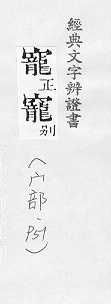 經典文字辨證書
寵正
别
(宀部、P51)